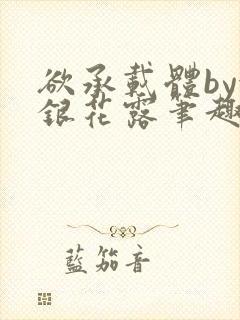 欲承載體by
銀花露筆趣
藍笳音